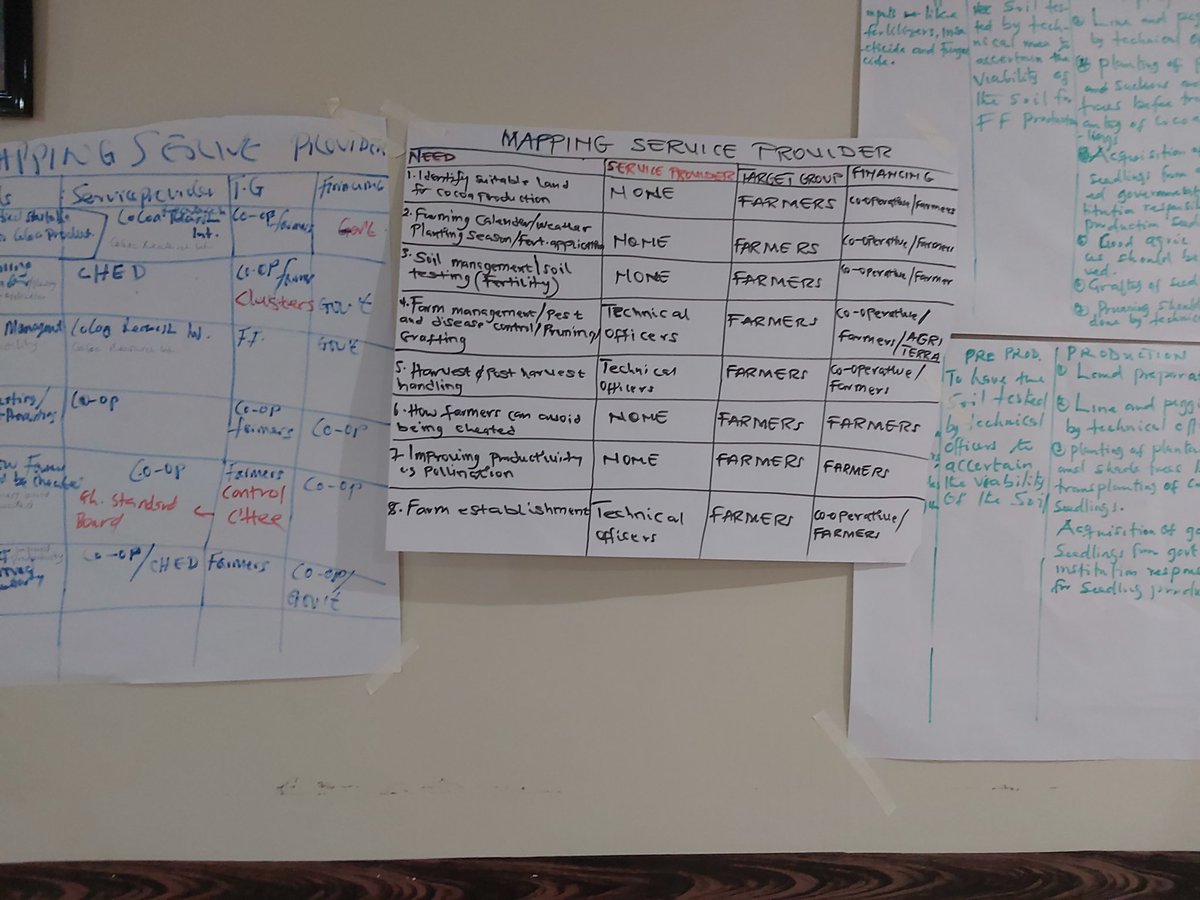 APPING SERVICE PROVIDER
Service provider
T.G
Financing
Cocoa Research
Inst.
Co-op/farmers
Gov't
Cocoa Product
CHED
Co-op/farms
Clusters
Gov't
Managment
F.F.
Gov't
Co-op
Co-op
farmers
Co-op
Co-op
Gh. Standard
Board
Farmers
Control
C'ttee
Co-op
Co-op/CHED
Farmers
Co-op/
Gov't
MAPPING SERVICE PROVIDER
NEED
SERVICE PROVIDER
TARGET GROUP
FINANCING
1. Identify suitable land
for cocoa production
NONE
FARMERS
co-operative/Farmers
2. Farming Calender/weather
Planting Season/Fert. application
NONE
FARMERS
Co-operative/Farmers
3. Soil management/soil
testing (Fertility)
NONE
FARMERS
Co-operative/Farmer
4. Farm management/Pest
and disease control/Pruning/
Grafting
Technical
Officers
FARMERS
Co-operative/
Farmers/AGRI
TERRA
5. Harvest & post harvest
handling
Technical
Officers
FARMERS
Co-operative/
Farmers
6. How farmers can avoid
being cheated
NONE
FARMERS
FARMERS
7. Improving Productivity
vs Pollination
NONE
FARMERS
FARMERS
8. Farm establishment
Technical
Officers
FARMERS
Co-operative/
FARMERS
inputs like
fertilizers, inse
cticide and fungi
cide.
Soil tes-
ted by tech-
nical men to
ascertain the
viability of
the soil for
FF Production
Line and peg
by technical
planting of
and suckers
trees before
of cocoa
Acquisition
seedlings from
ed governmental
titution respons
production
Good agric
as should be
ved.
Grafting of seed
Pruning should
done by technic
PRE PROD.
To have the
Soil tested
by technical
officers to
ascertain
the viability
of the soil
PRODUCTION
Land prepara
Line and pegging
by technical offi
planting of planta
and shade trees
transplanting of co
Seedlings.
Acquisition of go
Seedlings from govt
institution respons
for seedling produc